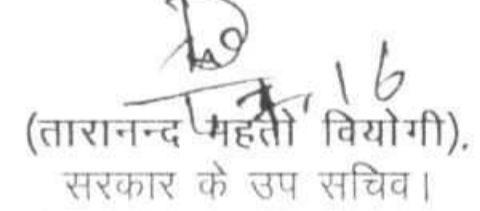 (तारानन्द महतो वियोगी).
सरकार के उप सचिव।